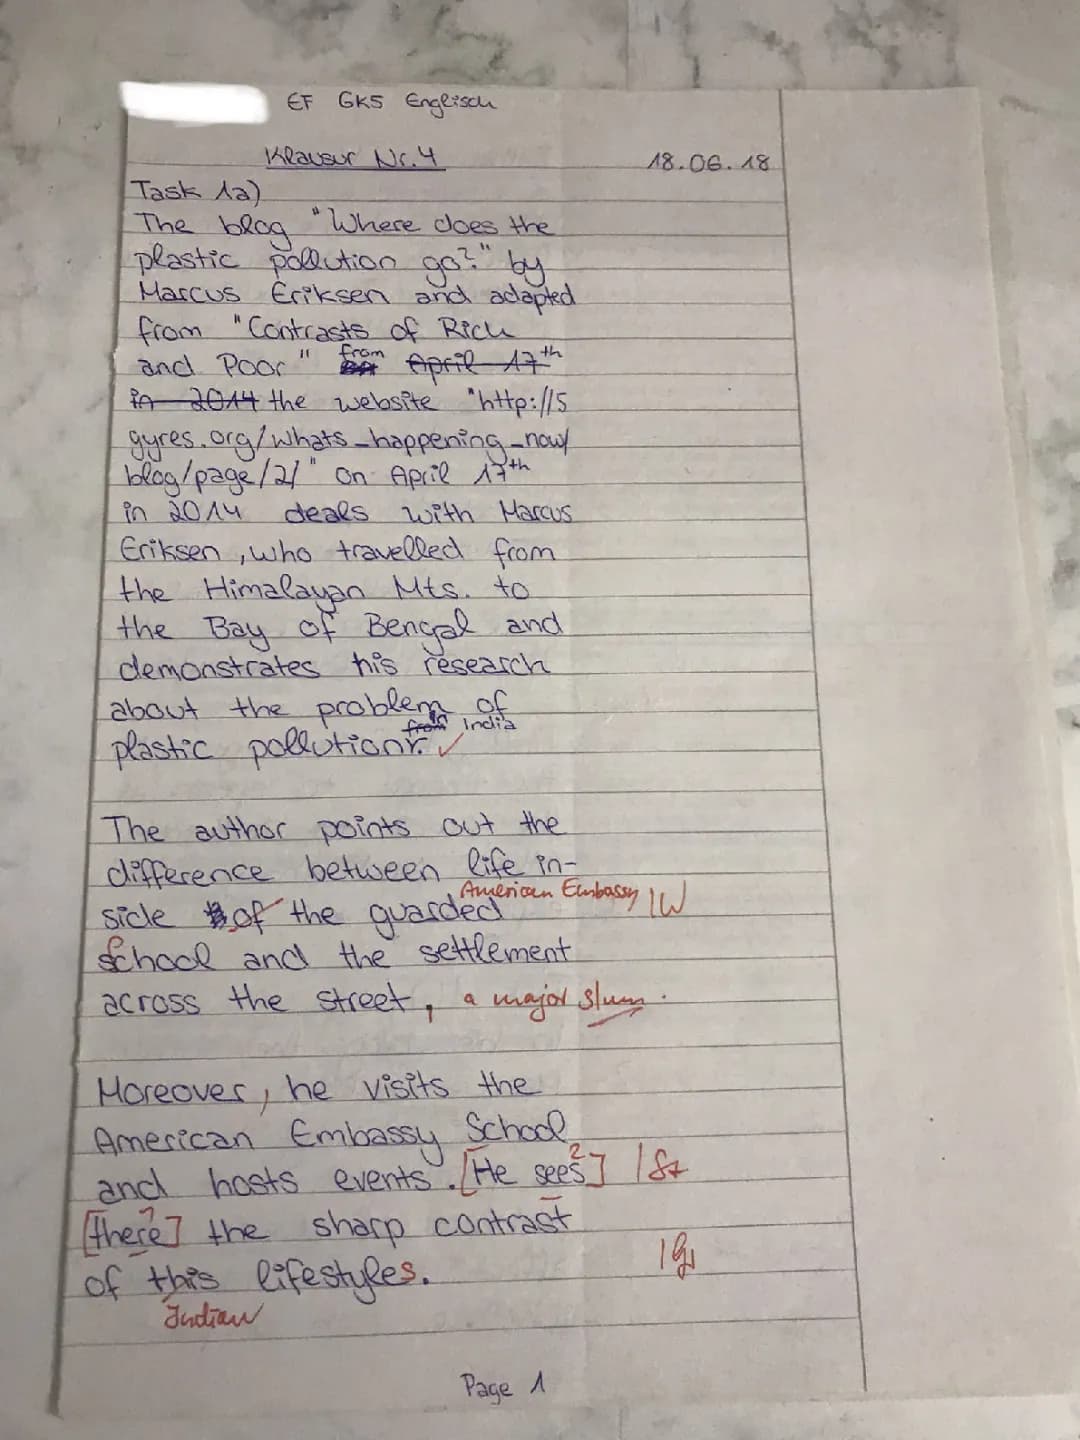 EF GK5 Englisch
Klausur Nr.4 18.06.18
Task 1a)
The blog "Where does the
plastic pollution go?" by
Marcus Eriksen and adapted
from "Contrasts of Rich
and Poor" from April 17th
in 2014 the website "http://5
gyres.org/whats_happening_now/
blog/page/2/" on April 17th
in 2014 deals with Marcus
Eriksen, who travelled from
the Himalayan Mts. to
the Bay of Bengal and
demonstrates his research
about the problem of
from in India
plastic pollution. ✓
The author points out the
difference between life in-
American Embassy IW
side of the guarded
School and the settlement
across the street, a major slum.
Moreover, he visits the
American Embassy School
and hosts events. [He sees?] ISt
[there?] the sharp contrast
of this lifestyles. IGr
Indian
Page 1